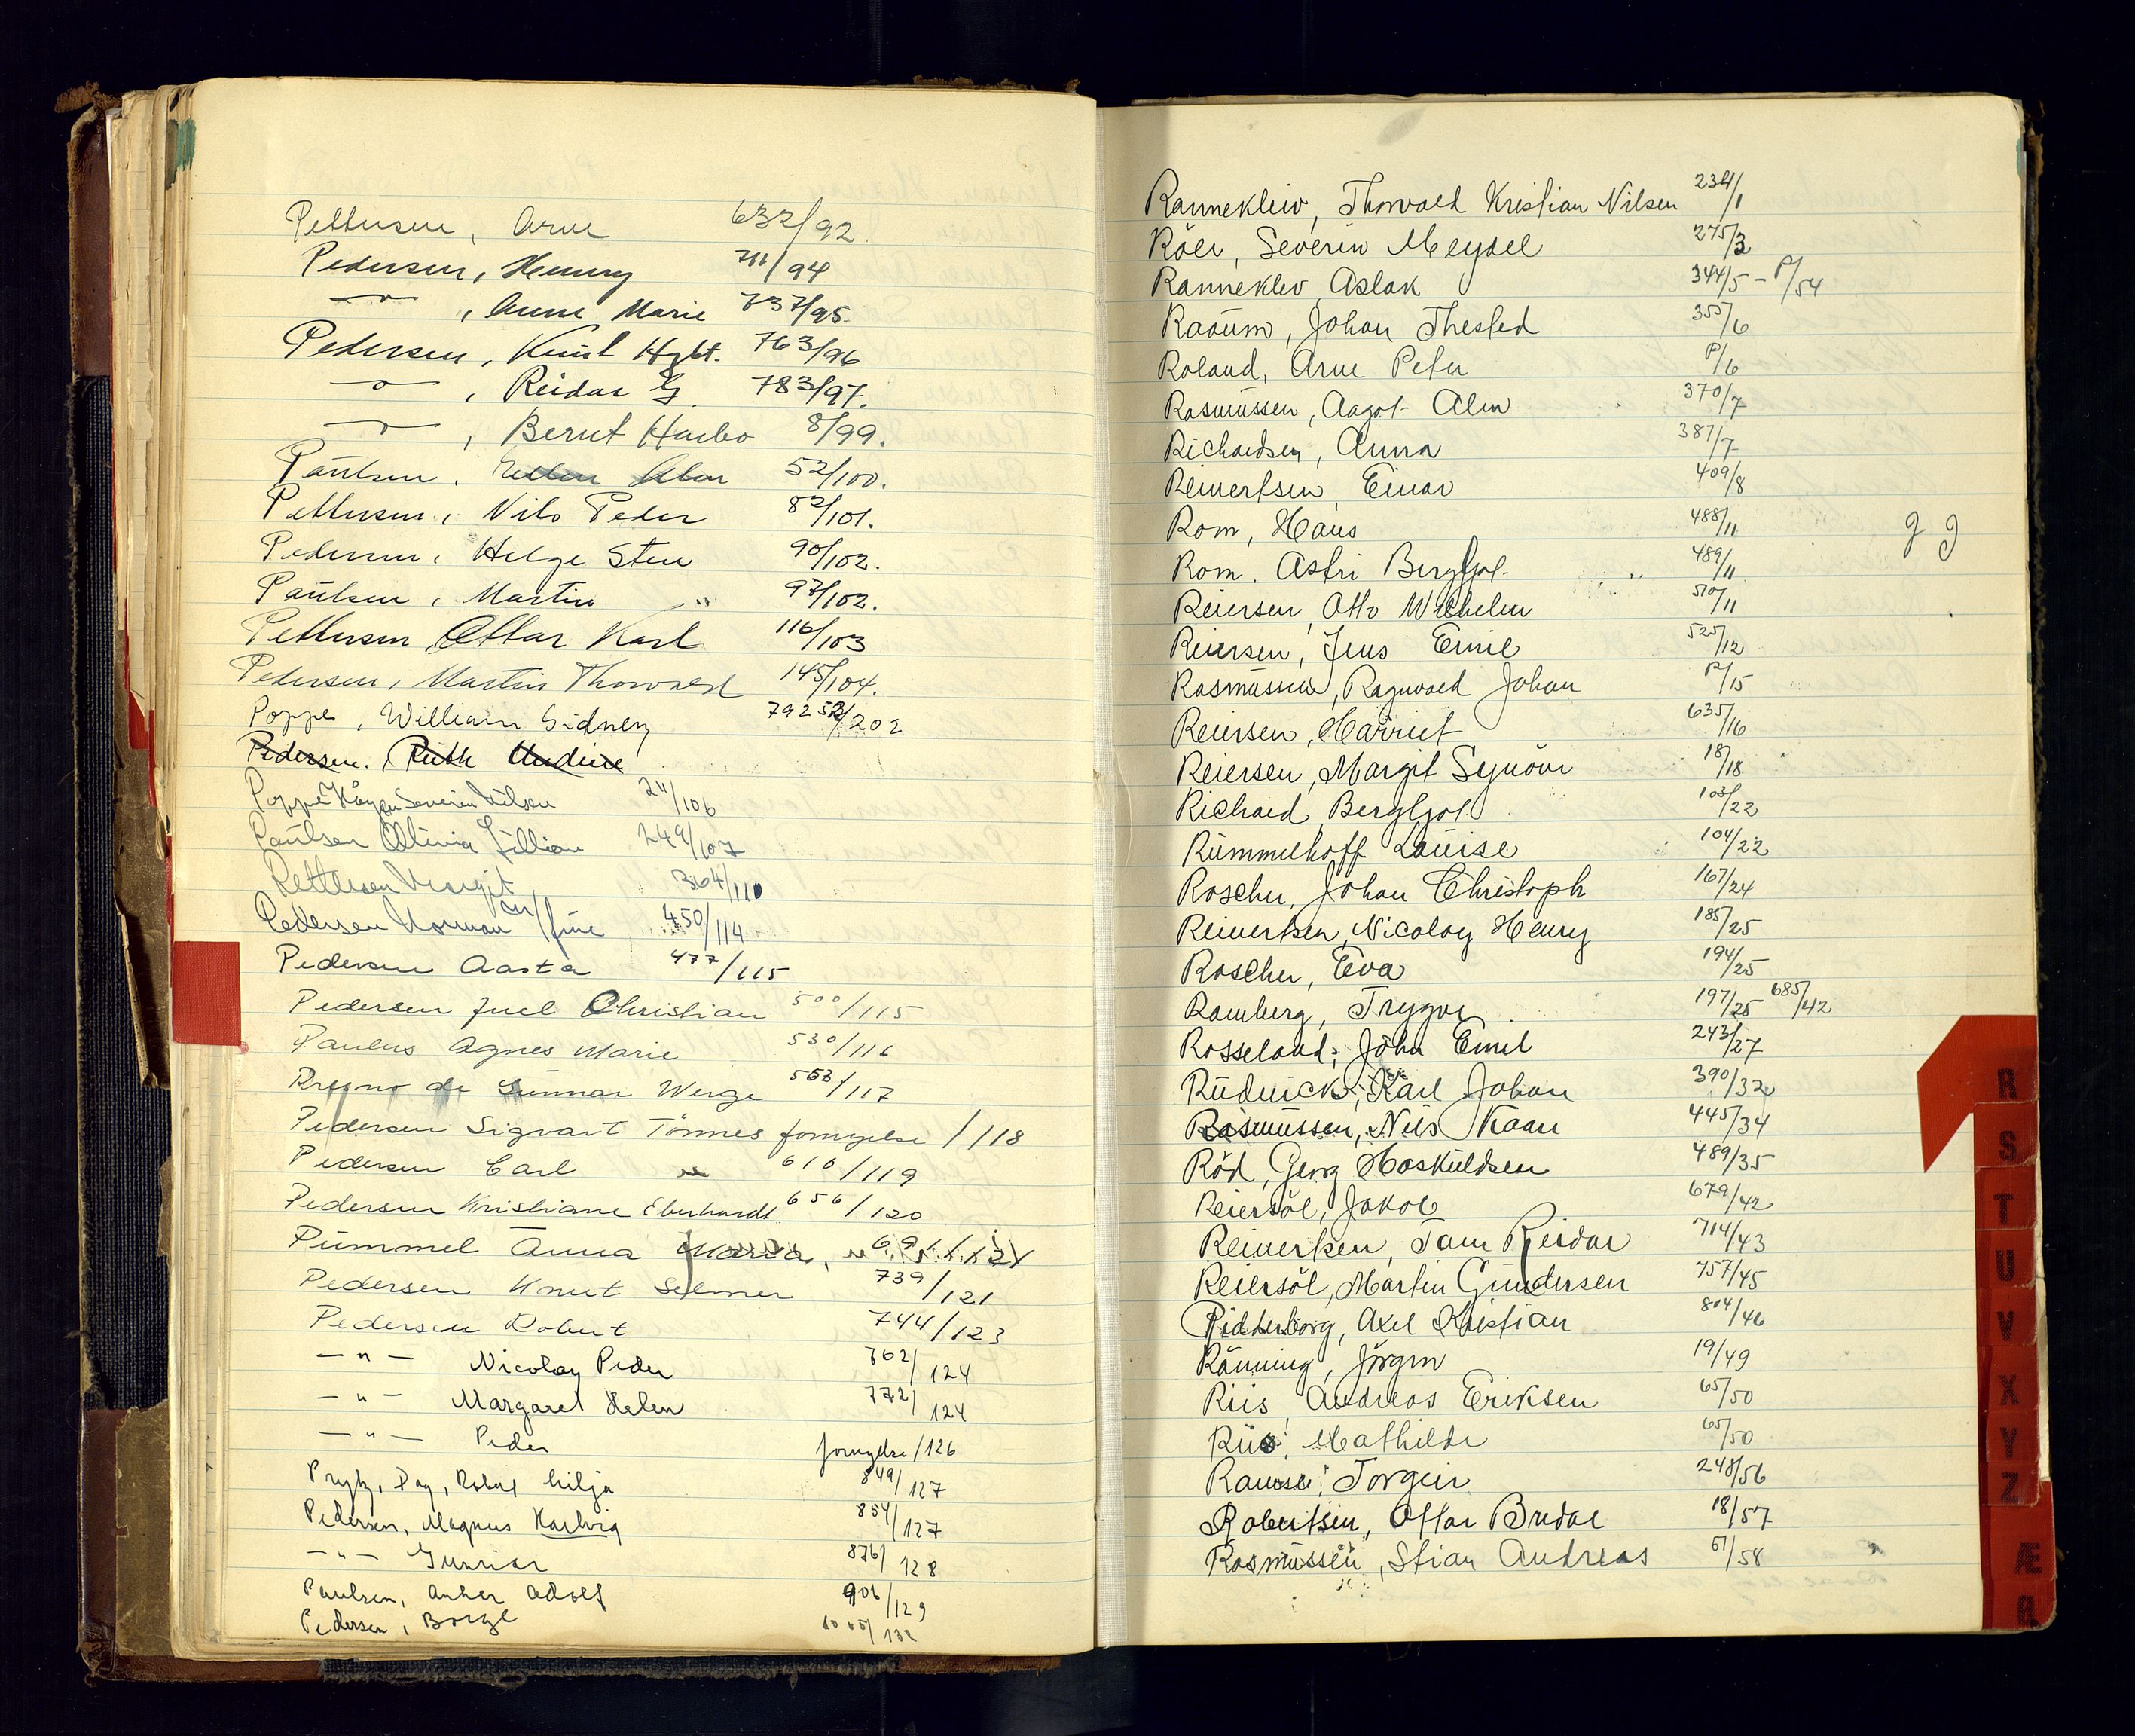 Pettersen, Arne 632/92
Pedersen, Henny 711/94
—"— , Anne Marie 737/95.
Pedersen, Knut Hgbt. 763/96
—"— , Reidar G. 783/97.
—"— , Bernt Harbo 8/99.
Paulsen, 52/100.
Pettersen, Nils Peder 82/101.
Pedersen, Helge Sten 90/102.
Paulsen, Martin " 97/102.
Pettersen, Ottar Karl 116/103
Pedersen, Martin Thorvald 145/104.
Poppe, William Sidney 792 /202
Pedersen. Ruth Undine
Poppe Severin Nilsen 211/106
Paulsen Olivia Jillian 249/107
Pettersen Margit 364/110
Pedersen Norman 450/114
Pedersen Aasta 477/115
Pedersen Juel Christian 500/115
Paulus Agnes Marie 530/116
de Gunnar Werge 553/117
Pedersen Sigvart Tönnes fornyelse /118
Pedersen Carl " 616/119
Pedersen Kristiane Eberhardt 656/120
Pümmel Anna Maria, " 691/121
Pedersen Knut Selmer 739/121
Pedersen Robert 744/123
—"— Nicolay Peder 762/124
—"— Margaret Helen 772/124
—"— Peder fornyelse/126
Prytz, Dag, Robert Silja 849/127
Pedersen, Magnus Hartvig 854/127
—"— Gunnar 876/128
Paulsen, Anker Adolf 906/129
Pedersen, Borge 1005/132
Ranneklev, Thorvald Kristian Nilsen 234/1
Röer, Severin Meydel 275/3
Ranneklev Aslak 344/5 - P/54
Raaum, Johan Thested 355/6
Roland, Arne Peter P/6
Rasmussen, Aagot Alm 370/7
Richardsen, Anna 387/7
Reinertsen, Einar 409/8
Rom, Hans 488/11
Rom. Astri Bergljot 489/11
Reiersen, Otto Wilhelm 510/11
Reiersen, Jens Emil 525/12
Rasmussen, Ragnvald Johan P/15
Reiersen, Harriet 635/16
Reiersen, Margit Synöve 18/18
Richard, Bergljot 103/22
Rümmelhoff Louise 104/22
Roscher, Johan Christoph 167/24
Reinertsen, Nicolay Henry 185/25
Roscher, Eva 194/25
Ramberg, Trygve 197/25 685/42
Rosseland, John Emil 243/27
Rudnick, Karl Johan 390/32
Rasmussen, Nils Kaare 445/34
Röd, Georg Hoskuldsen 489/35
Reiersöl, Jakob 679/42
Reinertsen, Tom Reidar 714/43
Reiersöl, Martin Gundersen 757/45
Ridderborg, Axel Kristian 804/46
Rönning, Jörgen 19/49
Riis, Andreas Eriksen 65/50
Riis, Mathilde 65/50
Ramse, Torgeir 248/56
Robertsen, Ottar Bredal 18/57
Rasmussen, Stian Andreas 61/58
g g
R
S
T
U
V
X
Y
Z
Æ
Ø